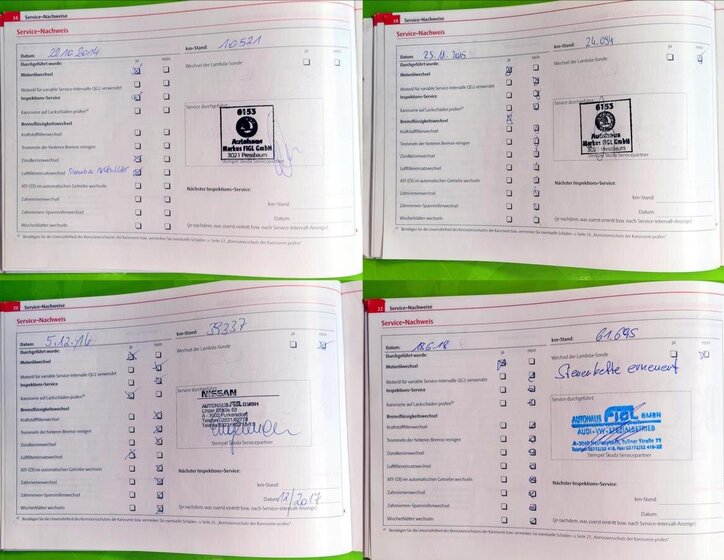 16 Service-Nachweise
Service-Nachweis
Datum: 22.10.2014
km-Stand: 10521
ja nein
ja nein
Durchgeführt wurde:
Wechsel der Lambda-Sonde
Motorölwechsel
Motoröl für variable Service-Intervalle QG1 verwendet
Inspektions-Service
Karosserie auf Lackschäden prüfen
Service durchgeführt
Bremsflüssigkeitswechsel
6153
Autohaus
Markus FIGL GmbH
3021 Pressbaum
Kraftstofffilterwechsel
Trommeln der hinteren Bremse reinigen
Zündkerzenwechsel
Stempel Škoda Servicepartner
Luftfiltereinsatzwechsel
ATF (Öl) im automatischen Getriebe wechseln
Nächster Inspektions-Service:
Zahnriemenwechsel
km-Stand:
Zahnriemen-Spannrollenwechsel
Datum
Wischerblätter wechseln
(je nachdem, was zuerst eintritt bzw. nach Service-Intervall-Anzeige)
Bestätigen Sie die Unversehrtheit des Korrosionsschutzes der Karosserie bzw. vermerken Sie eventuelle Schäden ⇒ Seite 23, „Korrosionsschutz der Karosserie prüfen“.
18 Service-Nachweise
Service-Nachweis
Datum: 25.11.2015
km-Stand: 24.094
ja nein
ja nein
Durchgeführt wurde:
Wechsel der Lambda-Sonde
Motorölwechsel
Motoröl für variable Service-Intervalle QG1 verwendet
Inspektions-Service
Karosserie auf Lackschäden prüfen
Service durchgeführt
Bremsflüssigkeitswechsel
6153
Autohaus
Markus FIGL GmbH
3021 Pressbaum
Kraftstofffilterwechsel
Trommeln der hinteren Bremse reinigen
Zündkerzenwechsel
Stempel Škoda Servicepartner
Luftfiltereinsatzwechsel
ATF (Öl) im automatischen Getriebe wechseln
Nächster Inspektions-Service:
Zahnriemenwechsel
km-Stand:
Zahnriemen-Spannrollenwechsel
Datum
Wischerblätter wechseln
(je nachdem, was zuerst eintritt bzw. nach Service-Intervall-Anzeige)
Bestätigen Sie die Unversehrtheit des Korrosionsschutzes der Karosserie bzw. vermerken Sie eventuelle Schäden ⇒ Seite 23, „Korrosionsschutz der Karosserie prüfen“.
20 Service-Nachweise
Service-Nachweis
Datum: 5.12.16
km-Stand: 39337
ja nein
ja nein
Durchgeführt wurde:
Wechsel der Lambda-Sonde
Motorölwechsel
Motoröl für variable Service-Intervalle QG1 verwendet
Inspektions-Service
Karosserie auf Lackschäden prüfen
Service durchgeführt
Bremsflüssigkeitswechsel
NISSAN
AUTOHAUS FIGL GMBH
Linzer Straße 53
A - 3002 Purkersdorf
Kraftstofffilterwechsel
Trommeln der hinteren Bremse reinigen
Zündkerzenwechsel
Stempel Škoda Servicepartner
Luftfiltereinsatzwechsel
ATF (Öl) im automatischen Getriebe wechseln
Nächster Inspektions-Service:
Zahnriemenwechsel
km-Stand:
Zahnriemen-Spannrollenwechsel
Datum 12/2017
Wischerblätter wechseln
(je nachdem, was zuerst eintritt bzw. nach Service-Intervall-Anzeige)
Bestätigen Sie die Unversehrtheit des Korrosionsschutzes der Karosserie bzw. vermerken Sie eventuelle Schäden ⇒ Seite 23, „Korrosionsschutz der Karosserie prüfen“
22 Service-Nachweise
Service-Nachweis
Datum: 18.6.18
km-Stand: 61.695
ja nein
ja nein
Durchgeführt wurde:
Wechsel der Lambda-Sonde
Motorölwechsel
Steuerkette erneuert
Motoröl für variable Service-Intervalle QG1 verwendet
Inspektions-Service
Karosserie auf Lackschäden prüfen
Service durchgeführt
Bremsflüssigkeitswechsel
AUTOHAUS FIGL GMBH
AUDI - VW - SPEZIALBETRIEB
Kraftstofffilterwechsel
Trommeln der hinteren Bremse reinigen
Zündkerzenwechsel
Stempel Škoda Servicepartner
Luftfiltereinsatzwechsel
ATF (Öl) im automatischen Getriebe wechseln
Nächster Inspektions-Service:
Zahnriemenwechsel
km-Stand:
Zahnriemen-Spannrollenwechsel
Datum
Wischerblätter wechseln
(je nachdem, was zuerst eintritt bzw. nach Service-Intervall-Anzeige)
Bestätigen Sie die Unversehrtheit des Korrosionsschutzes der Karosserie bzw. vermerken Sie eventuelle Schäden ⇒ Seite 23, „Korrosionsschutz der Karosserie prüfen“.